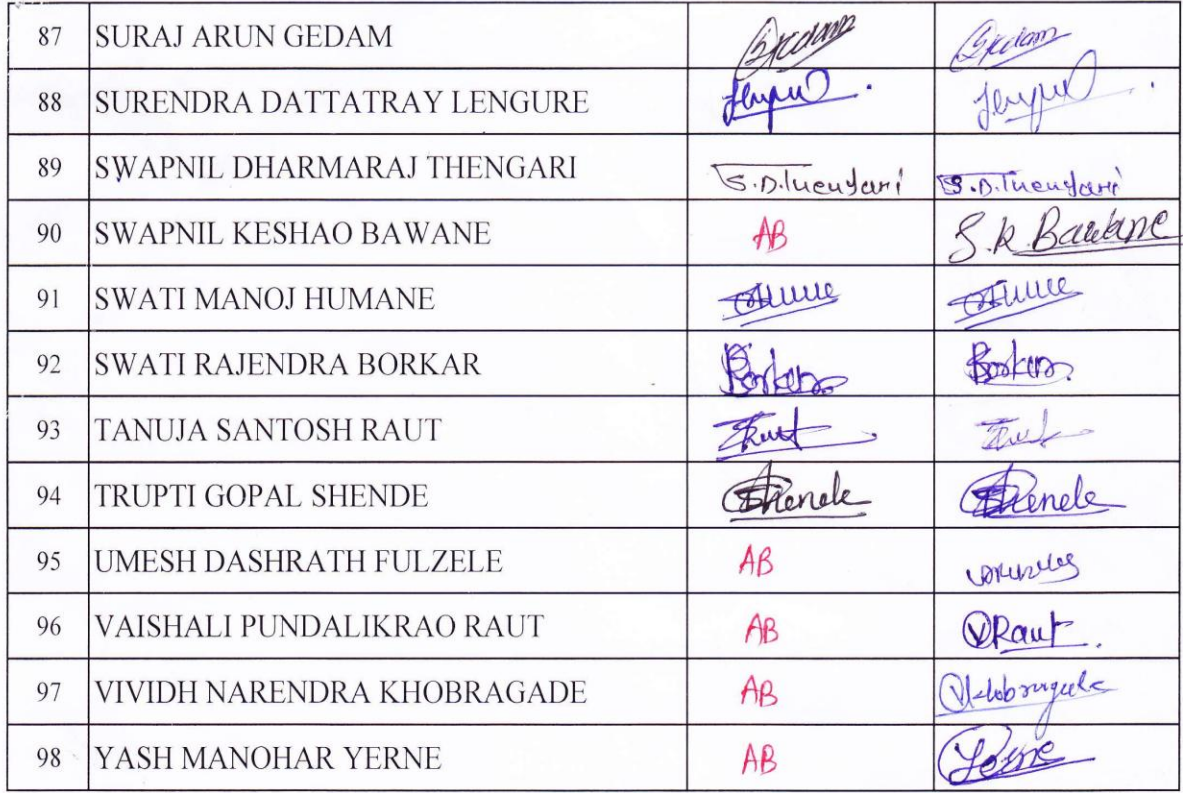 87 SURAJ ARUN GEDAM
88 SURENDRA DATTATRAY LENGURE
89 SWAPNIL DHARMARAJ THENGARI S.D.Thengari S.D.Thengari
90 SWAPNIL KESHAO BAWANE AB S.K Bawane
91 SWATI MANOJ HUMANE
92 SWATI RAJENDRA BORKAR Borkar Borkar
93 TANUJA SANTOSH RAUT
94 TRUPTI GOPAL SHENDE Shende Shende
95 UMESH DASHRATH FULZELE AB
96 VAISHALI PUNDALIKRAO RAUT AB VRaut
97 VIVIDH NARENDRA KHOBRAGADE AB VKhobragade
98 YASH MANOHAR YERNE AB Yerne